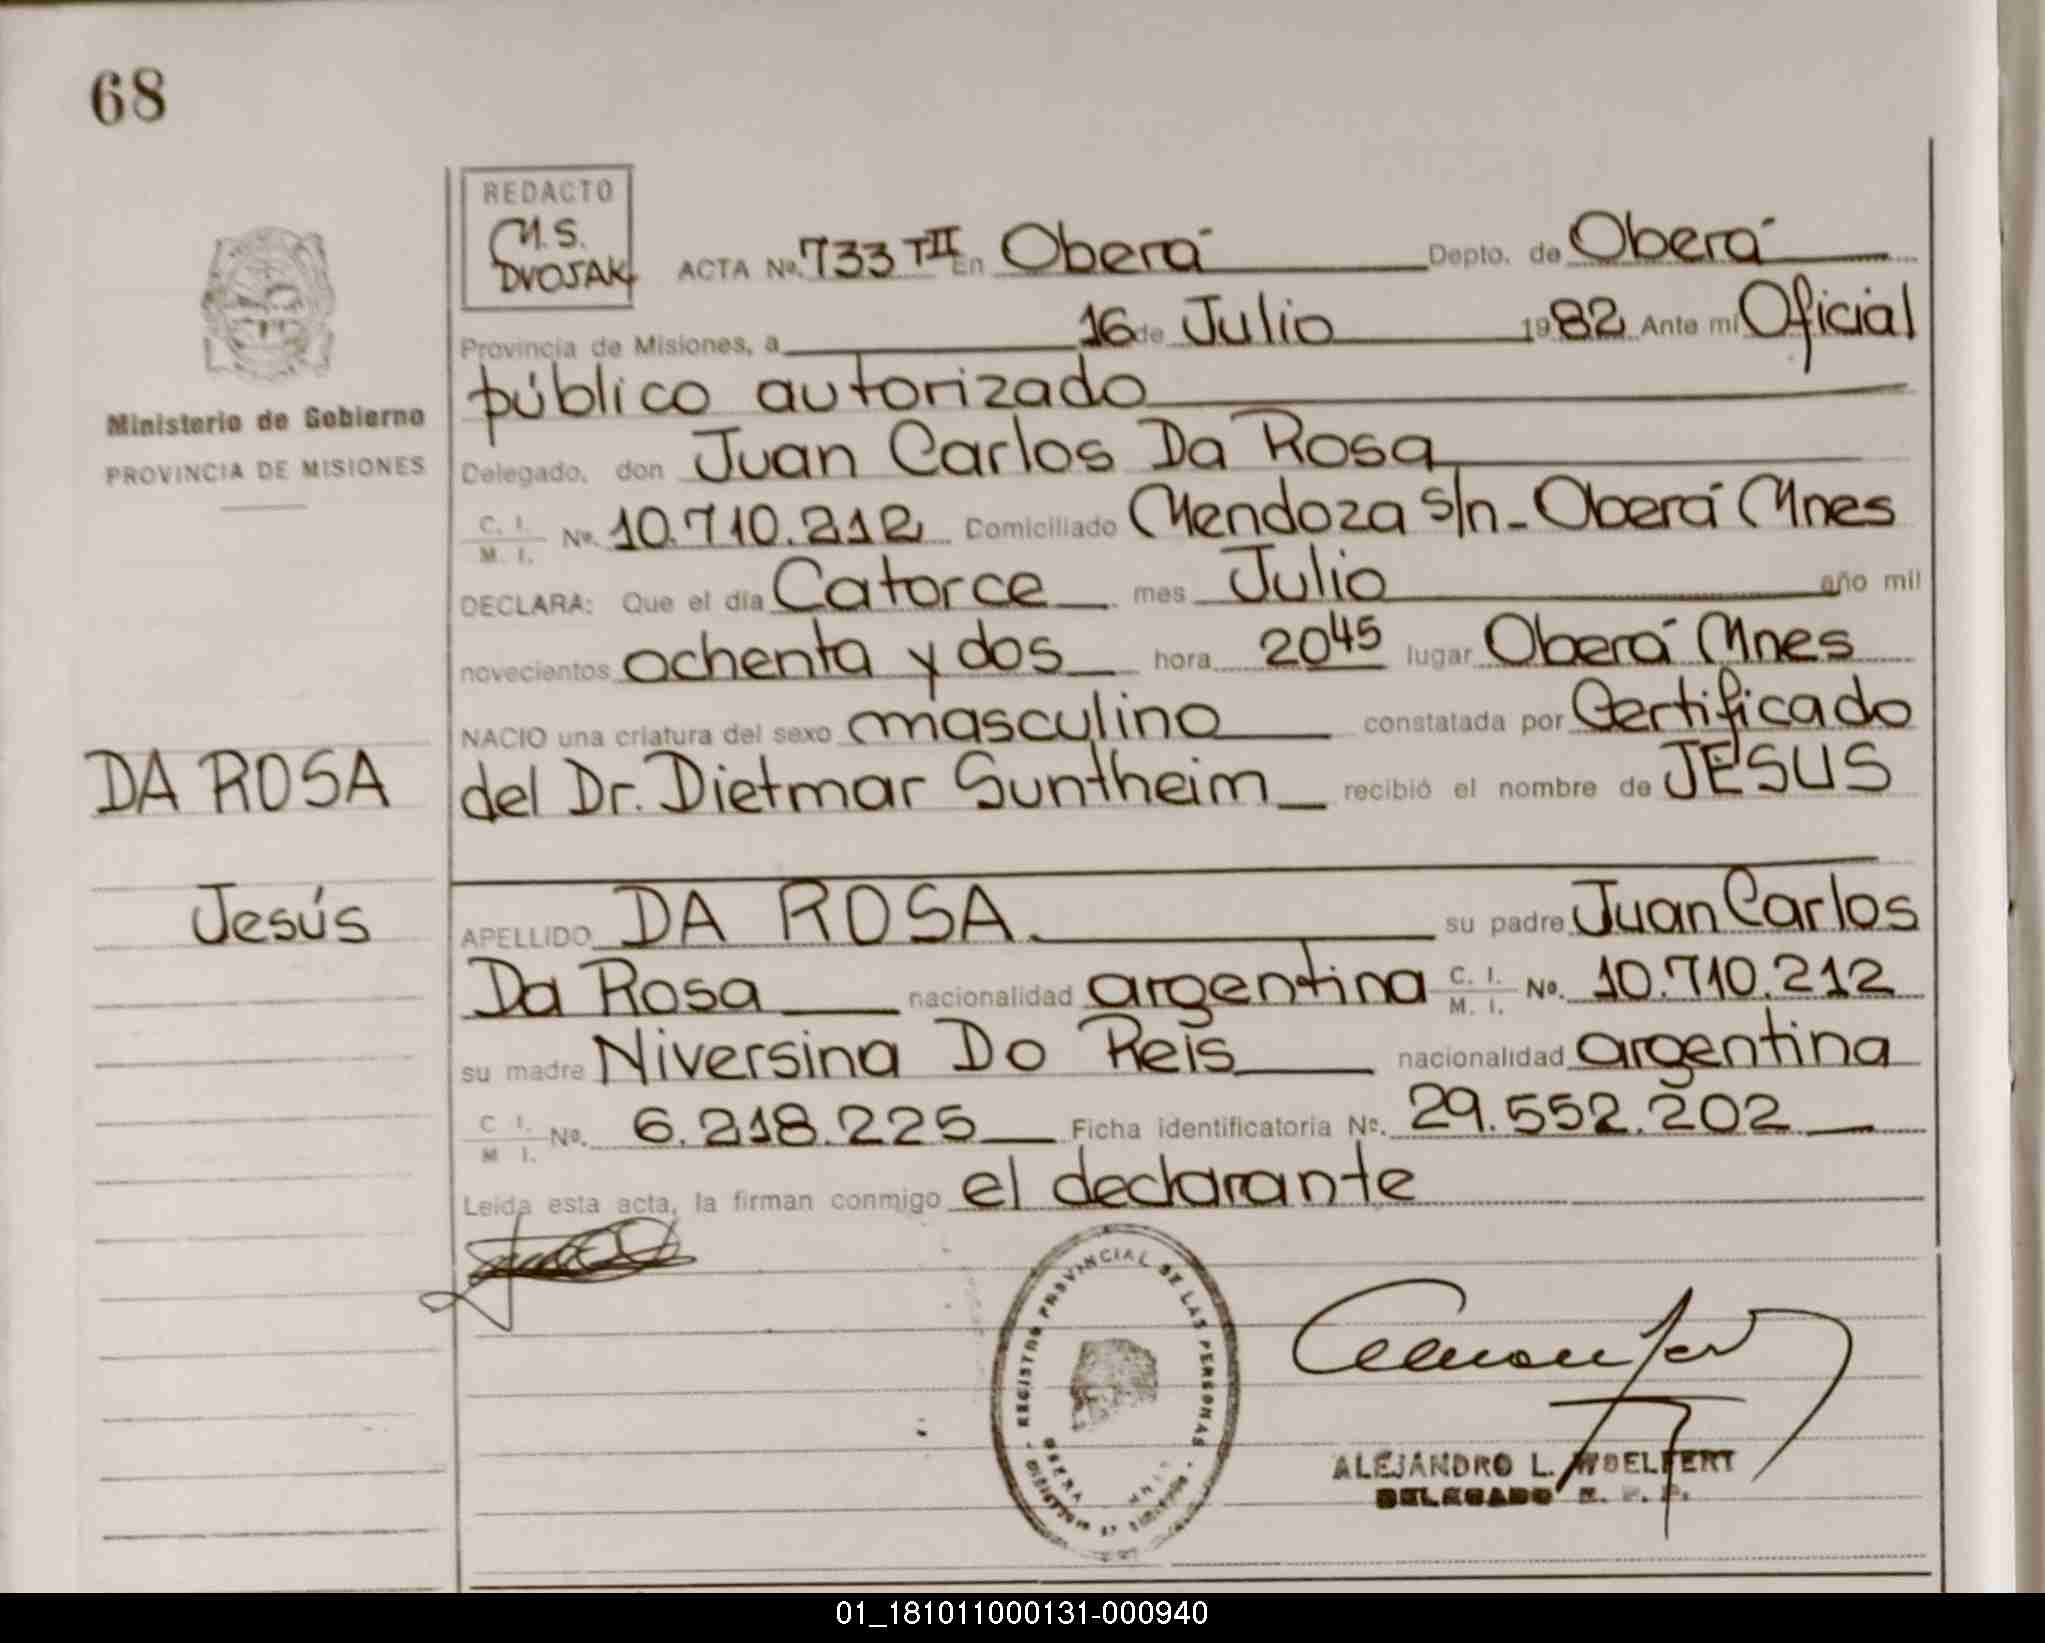 68
REDACTO
M. S.
DVOJAK
ACTA Nº 733 TII En Oberá Depto. de Oberá
Provincia de Misiones, a 16 de Julio 1982 Ante mí Oficial
público autorizado
Ministerio de Gobierno
PROVINCIA DE MISIONES
Delegado, don Juan Carlos Da Rosa
C. I.
M. I. Nº. 10.710.212 Domiciliado Mendoza s/n - Oberá Mnes
DECLARA: Que el día Catorce mes Julio año mil
novecientos ochenta y dos hora 20 45 lugar Oberá Mnes
NACIO una criatura del sexo masculino constatada por Certificado
DA ROSA
del Dr. Dietmar Suntheim recibió el nombre de JESUS
Jesús
APELLIDO DA ROSA su padre Juan Carlos
Da Rosa nacionalidad argentina C. I. M. I. Nº. 10.710.212
su madre Niversina Do Reis nacionalidad argentina
C I. M I. Nº. 6.218.225 Ficha identificatoria Nº. 29.552.202
Leída esta acta, la firman conmigo el declarante
REGISTRO PROVINCIAL DE LAS PERSONAS
OBERA
ALEJANDRO L. WOELFERT
DELEGADO R. P. P.
01_181011000131-000940